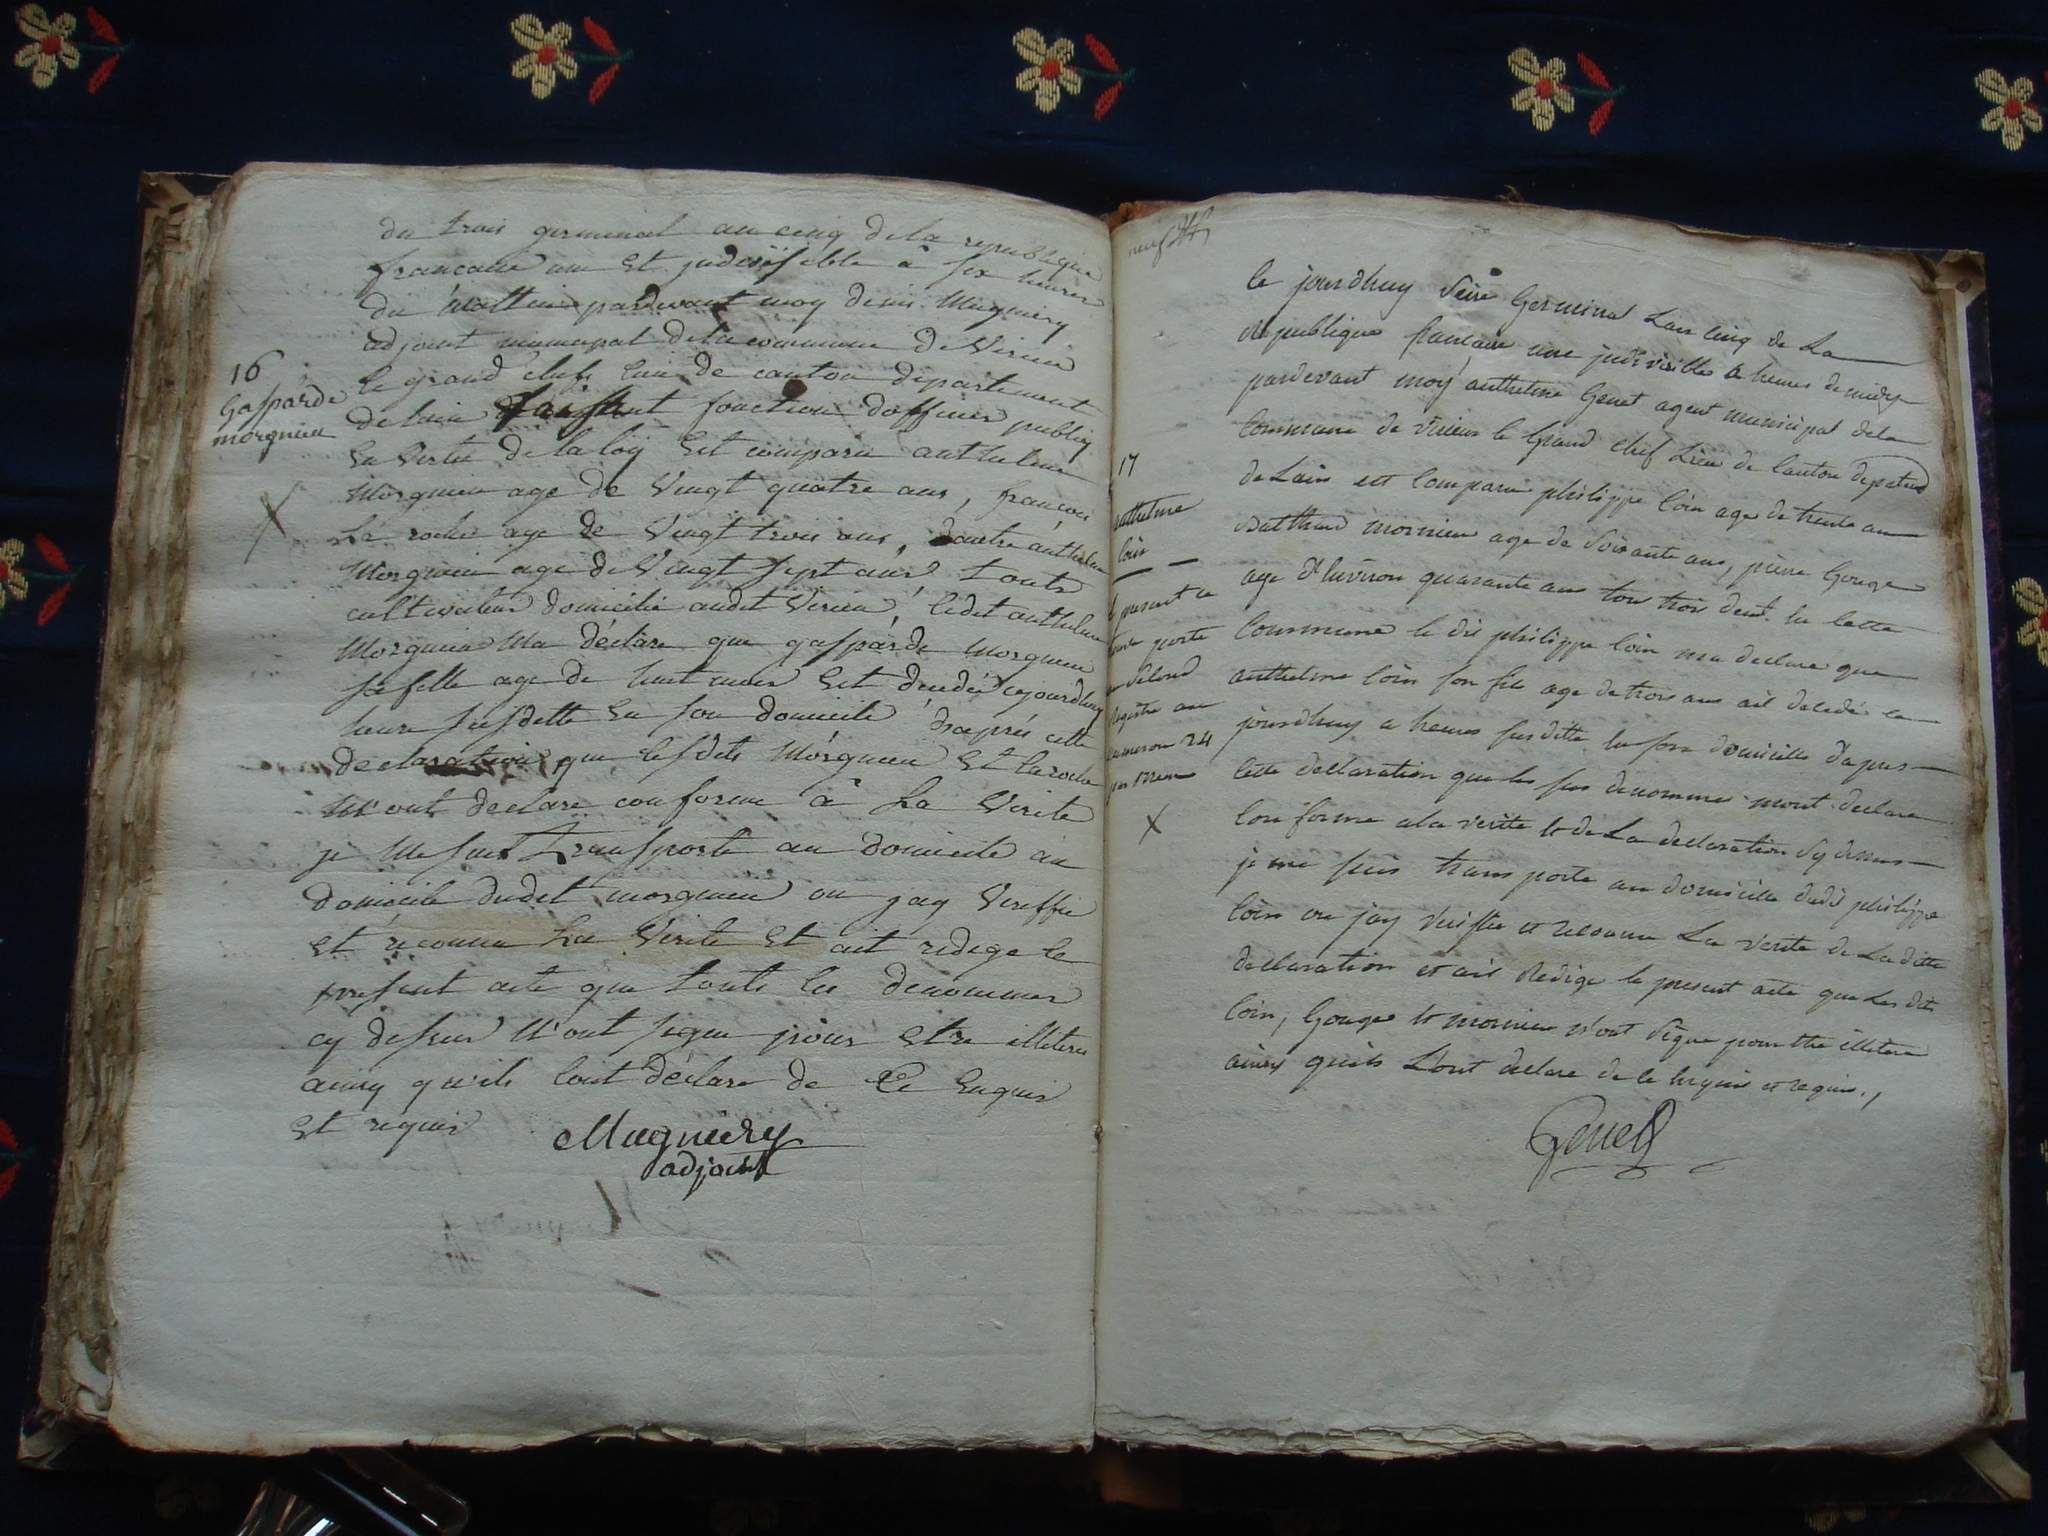 du trois germinal an cinq de la republique
francaise une et judivisible a six heures
du mattin pardevant moy denis Mugniery
adjoint municipal de la commune de Virieu
le grand chef lieu de canton departement
16
Gasparde
morgnieu
de lain faisant fonction dofficier publiq
en Vertu de la loy Est comparu anthelme
Morgnieu age de Vingt quatre ans, francois
La roche age de Vingt trois ans, dautre anthelme
Morgnieu age de Vingt sept ans touts
cultivateur domicilie audit Virieu, ledit anthelme
Morgnieu Ma déclare que gasparde Morgnieu
sa fille age de huit mois Est décedé cejourdhuy
heure susditte en son domicile d'après cette
declaration que lesdits Morgnieu Et la roche
M'ont declare conforme à La Verite
je Me suis transporte au domicile au
domicile dudit morgnieu ou jay Veriffie
Et reconnu La Verite Et ait redige le
present acte que touts les denommes
cy dessus N'ont signe pour Etre illiteres
ainsy qu'ils lont declare de Ce Enquis
Et requis
Mugniery
adjoint
neuf
le jourdhuy Seize Germinal Lan cinq de La
Republique francaise une judivisible a heures de midy
pardevant moy anthelme Genet agent municipal dela
Commune de Virieu le Grand Chef Lieu de Canton
17
anthelme
loin
de Lain est Comparu philippe loin age de trente ans
Balthard mornieu age de Soixante ans, pierre Gouge
age d'Environ quarante ans tous trois en cette
le present ac
porte
Second
Registre au
numero 24
Commune le dit philippe loin ma declare que
anthelme loin son fils age de trois ans ait decedé ce
jourdhuy a heures susditte en son domicille d'apres
cette declaration que les sus denommes mont declare
Conforme ala verite et de La declaration cy dessus
je me suis transporte au domicille dudit philippe
loin ou jay veriffie et reconnu La verite de La ditte
declaration et ait Redige le present acte que Les dit
loin, Gouge et mornieu n'ont Signe pour etre illitere
ainsy quils L'ont declare de ce Enquis et requis.,
Genet